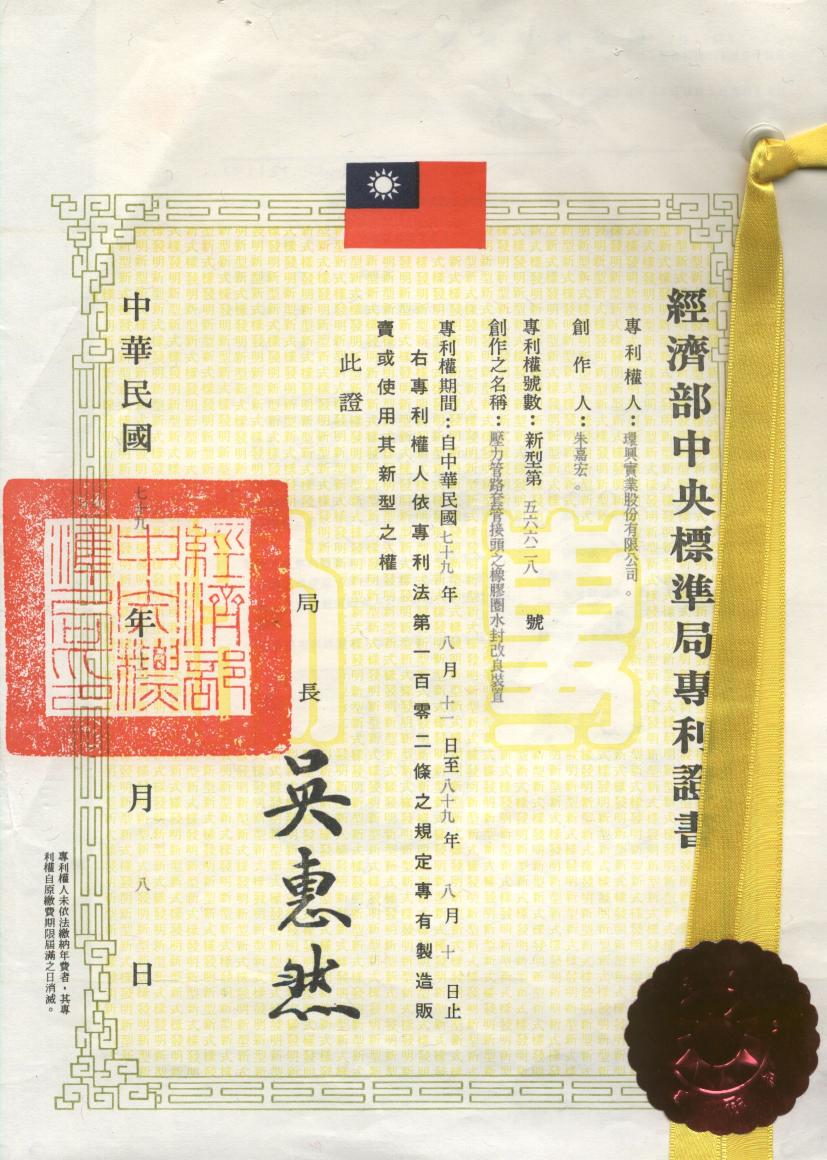 經濟部中央標準局專利證書
專利權人：環興實業股份有限公司。
創作人：朱嘉宏。
專利權號數：新型第 五六六二八 號
創作之名稱：壓力管路套管接頭之橡膠圈水封改良裝置
專利權期間：自中華民國七十九年 八月 十一 日至八十九年 八月 十 日止
右專利權人依專利法第一百零二條之規定專有製造販
賣或使用其新型之權
此證
局長 吳惠然
中華民國 七十九 年 月 八 日
經濟部
中央標
準局印
專利權人未依法繳納年費者，其專
利權自原繳費期限屆滿之日消滅。